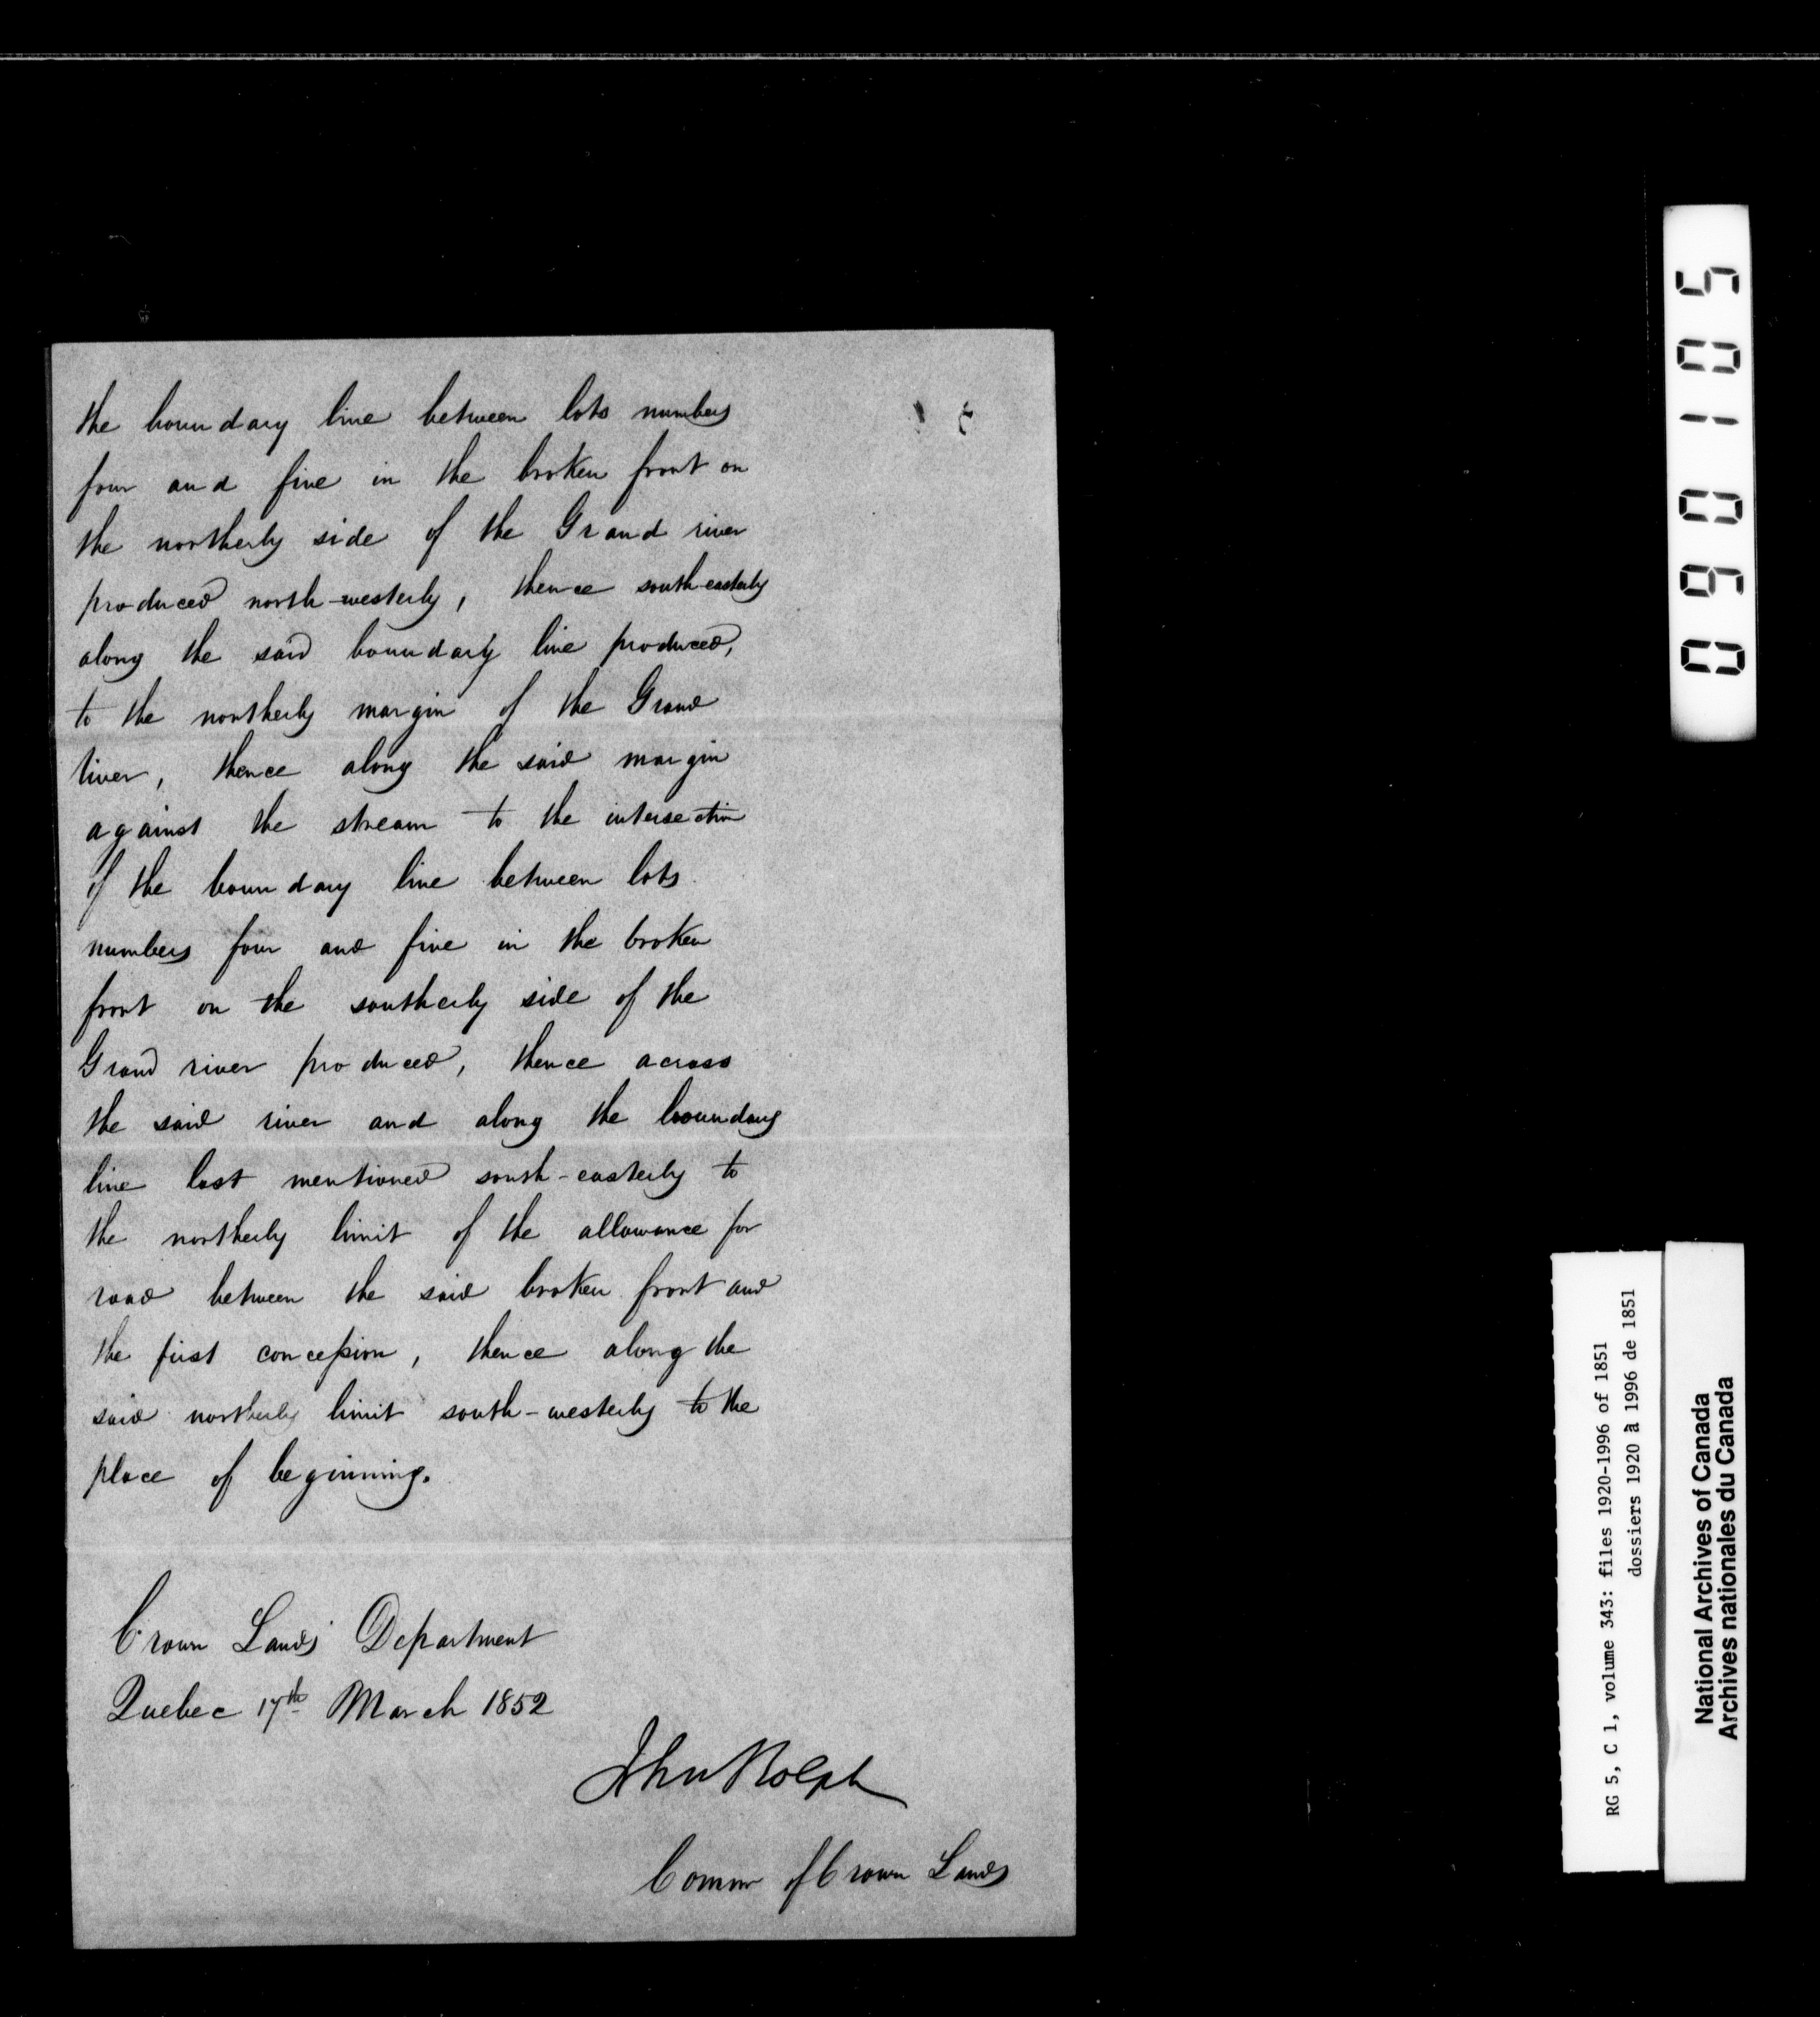 the boundary line between lots numbers
four and five in the broken front on
the northerly side of the Grand river
produced north-westerly, thence south-easterly
along the said boundary line produced,
to the northerly margin of the Grand
river, thence along the said margin
against the stream to the intersection
of the boundary line between lots
numbers four and five in the broken
front on the southerly side of the
Grand river produced, thence across
the said river and along the boundary
line last mentioned south-easterly to
the northerly limit of the allowance for
road between the said broken front and
the first concession, thence along the
said northerly limit south-westerly to the
place of beginning.
Crown Lands Department
Quebec 17th March 1852
John Rolph
Commr of Crown Lands
090105
RG 5, C 1, volume 343: files 1920-1996 of 1851
dossiers 1920 à 1996 de 1851
National Archives of Canada
Archives nationales du Canada